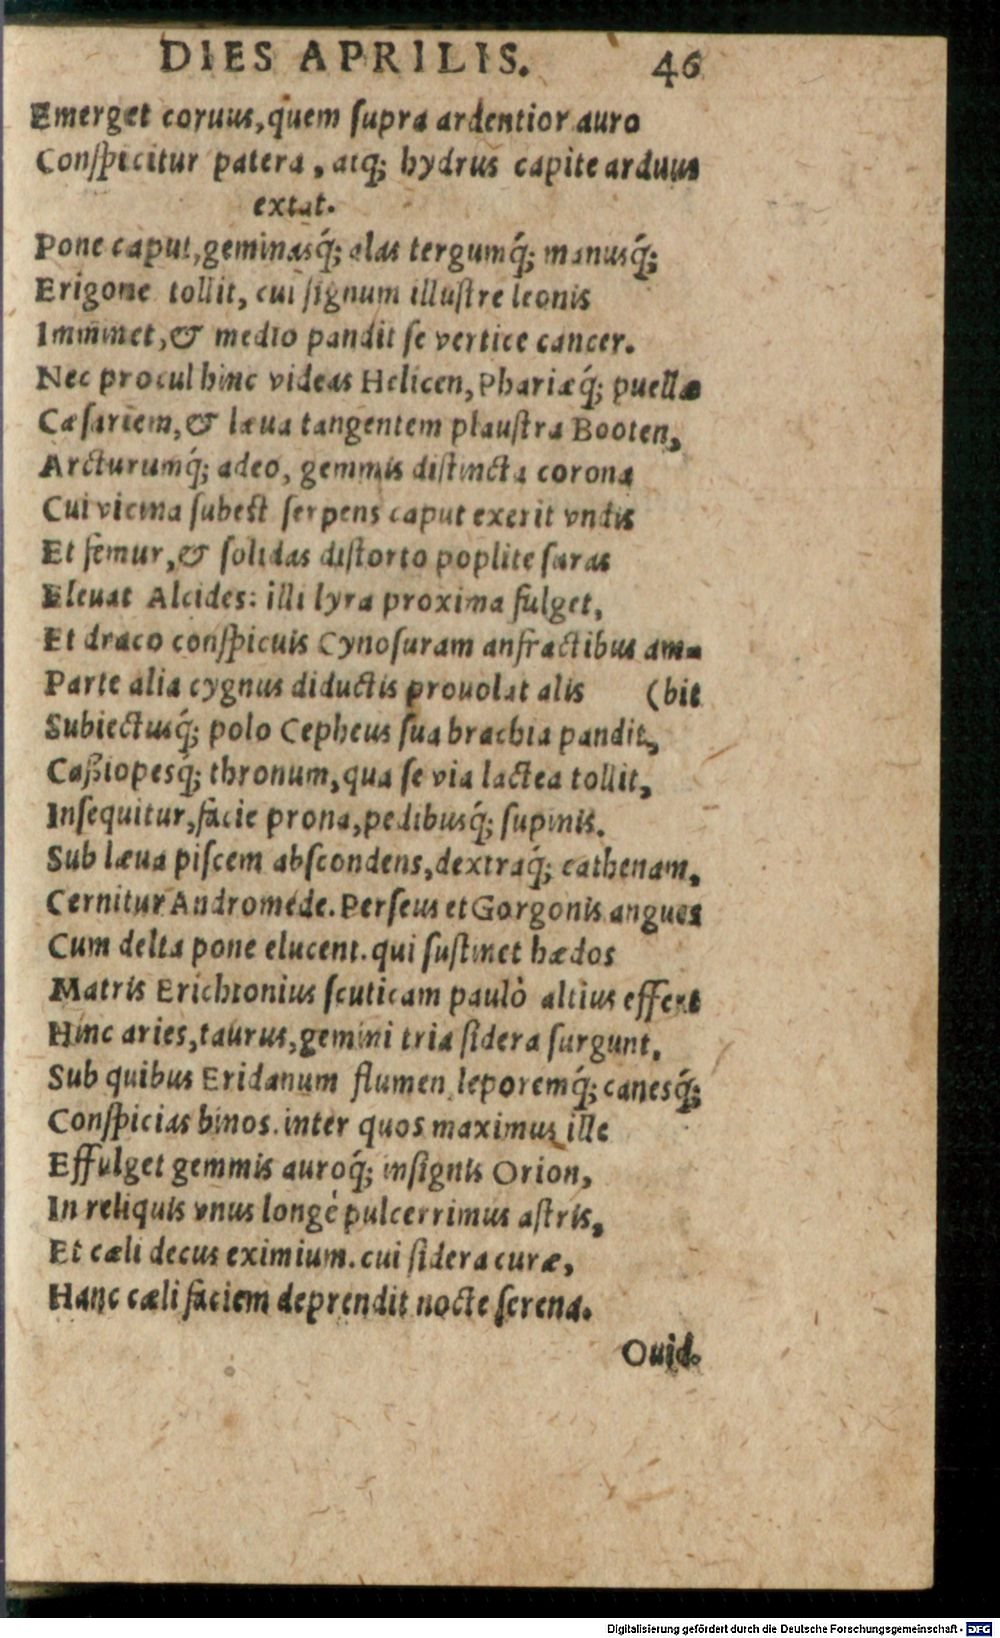 DIES APRILIS. 46
Emerget coruus, quem ſupra ardentior auro
Conſpicitur patera, atq; hydrus capite arduus
extat.
Pone caput, geminasq́; alas tergumq́; manusq́;
Erigone tollit, cui ſignum illuſtre leonis
Imminet, & medio pandit ſe vertice cancer.
Nec procul hinc videas Helicen, Phariæq́; puellæ
Cæſariem, & læua tangentem plauſtra Booten,
Arcturumq́; adeo, gemmis diſtincta corona
Cui vicina ſubeſt ſerpens caput exerit vndis
Et femur, & ſolidas diſtorto poplite ſuras
Eleuat Alcides: illi lyra proxima fulget,
Et draco conſpicuis Cynoſuram anfractibus am-
Parte alia cygnus diductis prouolat alis (bit
Subiectusq́; polo Cepheus ſua brachia pandit,
Caßiopesq́; thronum, qua ſe via lactea tollit,
Inſequitur, facie prona, pedibusq́; ſupinis.
Sub læua piſcem abſcondens, dextraq́; cathenam,
Cernitur Andromede. Perſeus et Gorgonis angues
Cum delta pone elucent. qui ſuſtinet hædos
Matris Erichtonius ſcuticam paulò altius effert
Hinc aries, taurus, gemini tria ſidera ſurgunt,
Sub quibus Eridanum flumen leporemq́; canesq́;
Conſpicias binos. inter quos maximus ille
Effulget gemmis auroq́; inſignis Orion,
In reliquis vnus longè pulcerrimus aſtris,
Et cæli decus eximium. cui ſidera curæ,
Hanc cæli faciem deprendit nocte ſerena.
Ouid.
Digitalisierung gefördert durch die Deutsche Forschungsgemeinschaft - DFG